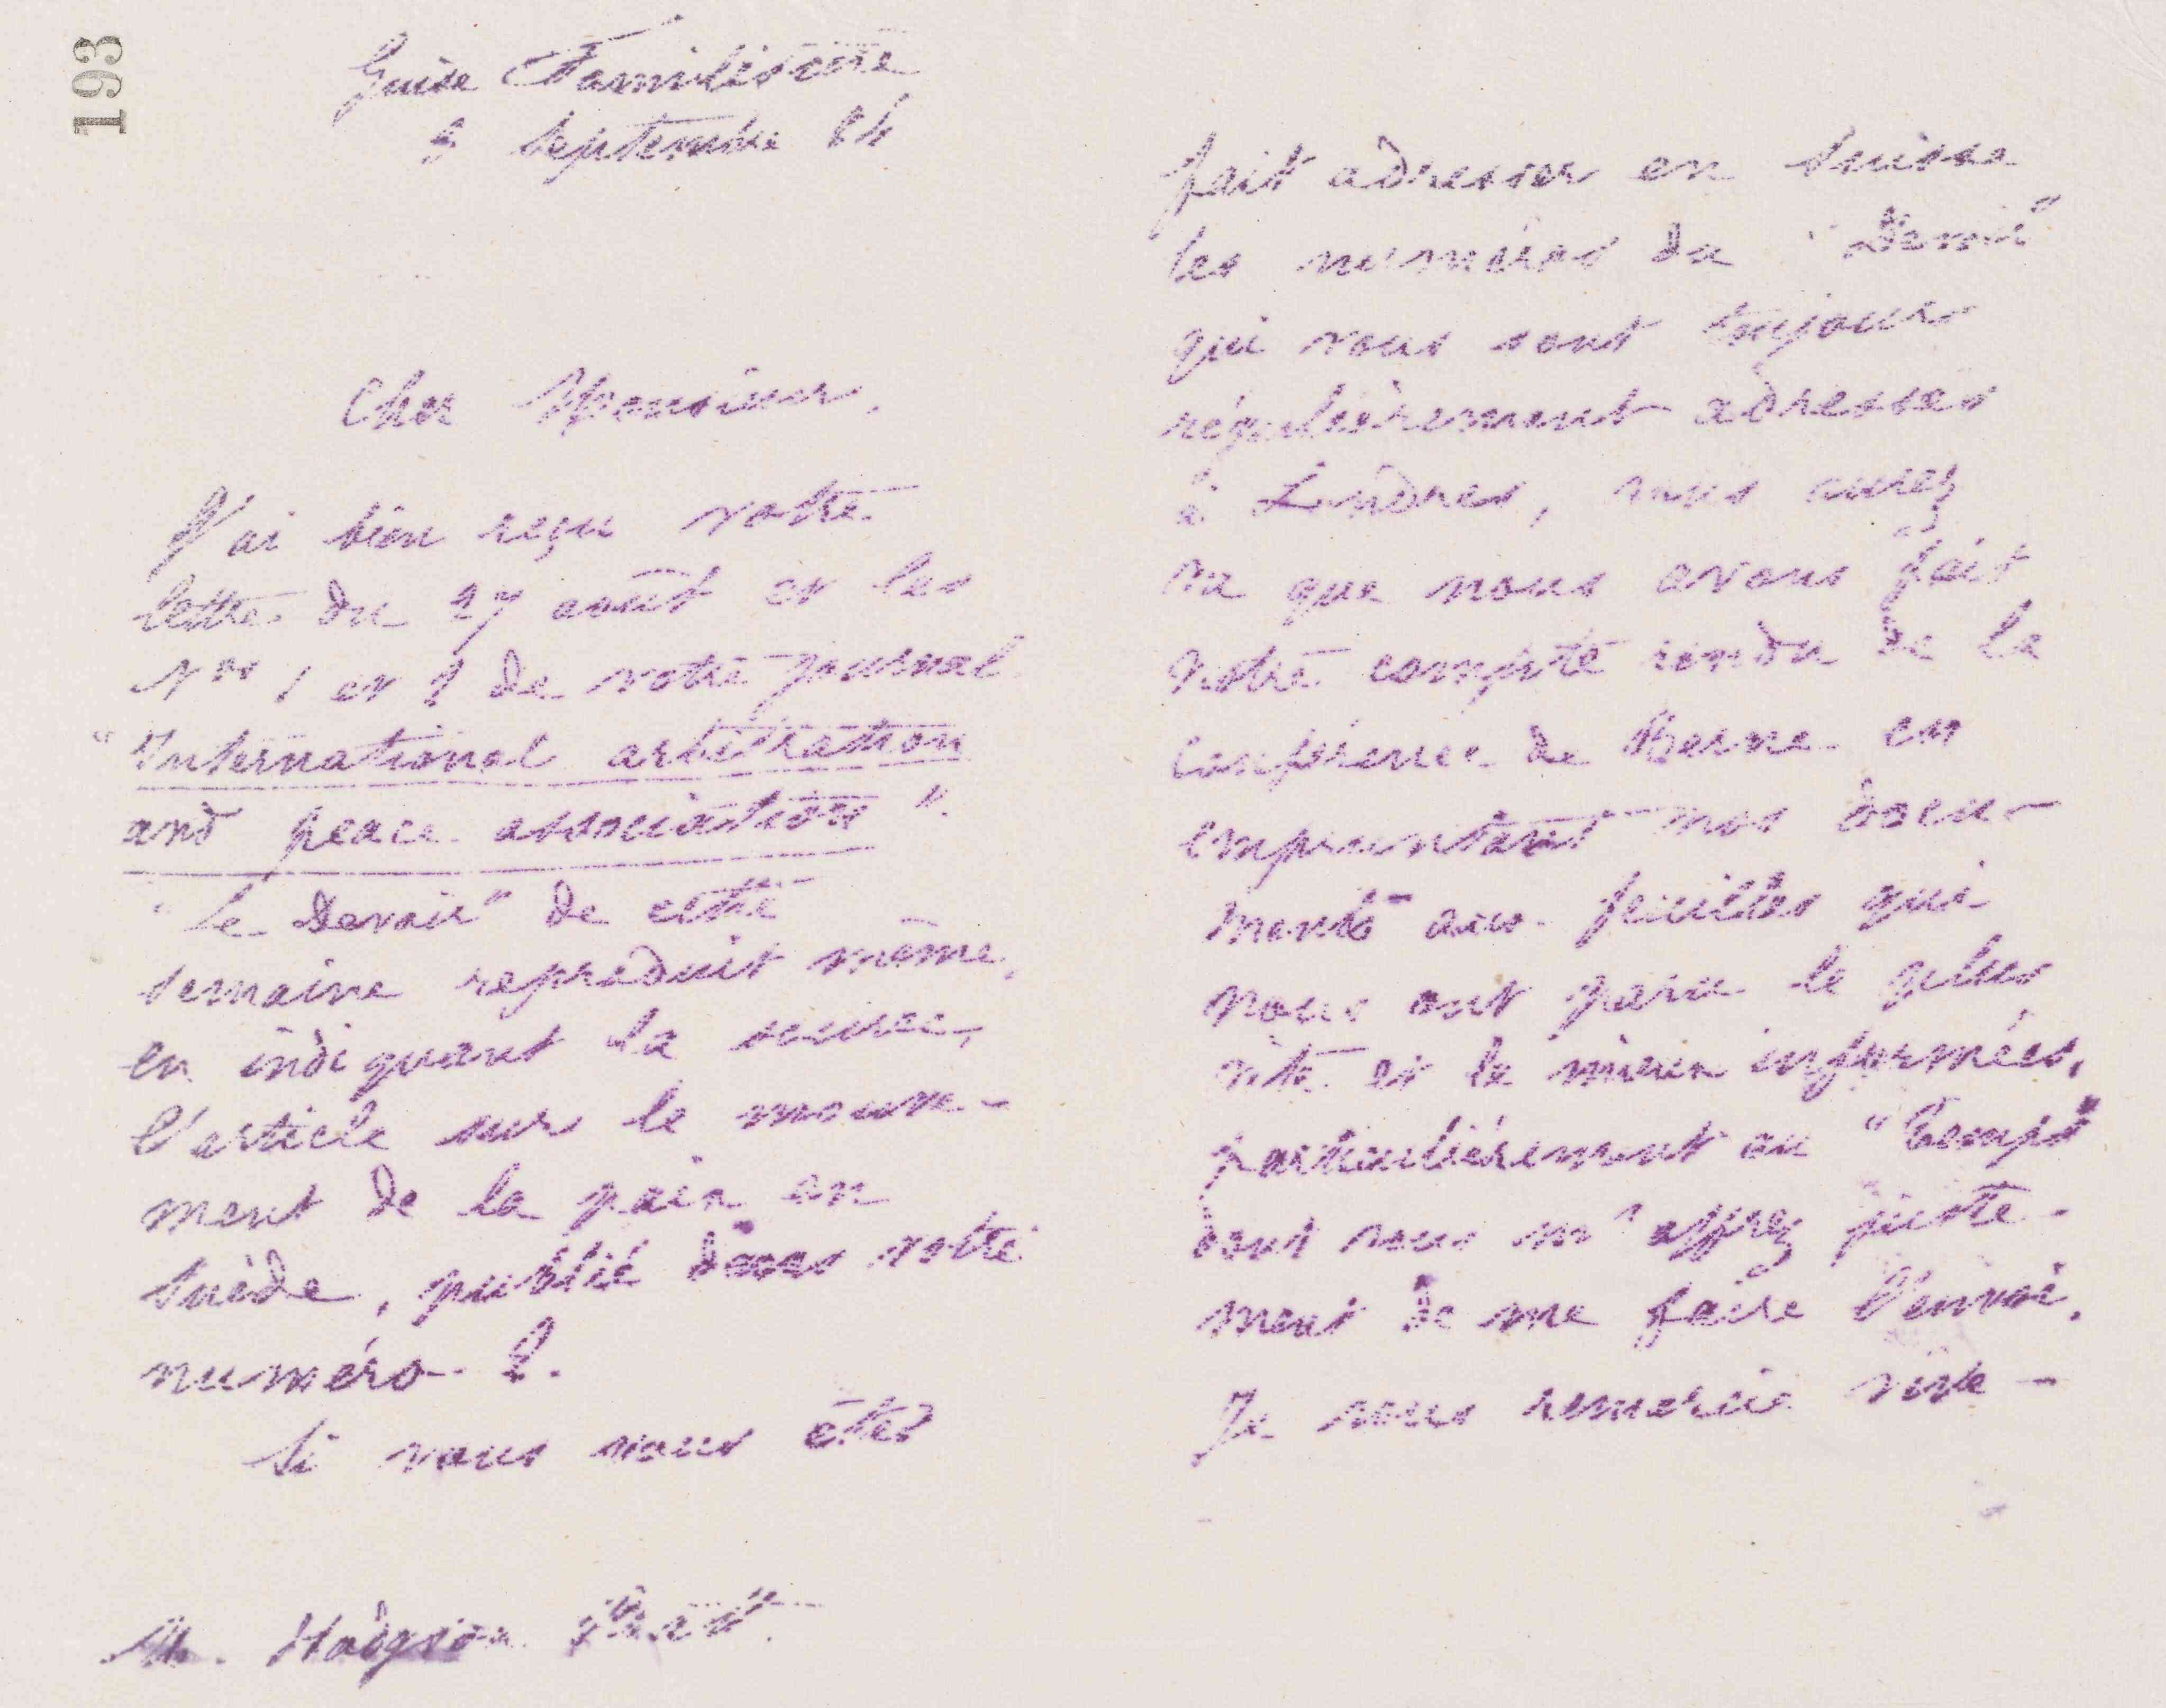 193
Guise Familistère
3 Septembre 84
Cher Monsieur,
J'ai bien reçu votre
lettre du 27 août et les
Nos 1 et 2 de votre journal
"International arbitration
and peace association".
"Le Devoir" de cette
semaine reproduit même,
en indiquant la source,
l'article sur le mouve-
ment de la paix en
Suède, publié dans votre
numéro 2.
Si vous vous êtes
M. Hodgson Pratt.
fait adresser en Suisse
les numéros du "Devoir"
qui vous sont toujours
régulièrement adressés
à Londres, vous aurez
vu que nous avons fait
notre compte rendu de la
Conférence de Berne en
empruntant nos docu-
ments aux feuilles qui
nous ont paru le plus
vite et le mieux informées,
particulièrement au "Temps"
dont vous m'offrez juste-
ment de me faire l'envoi.
Je vous remercie vive-